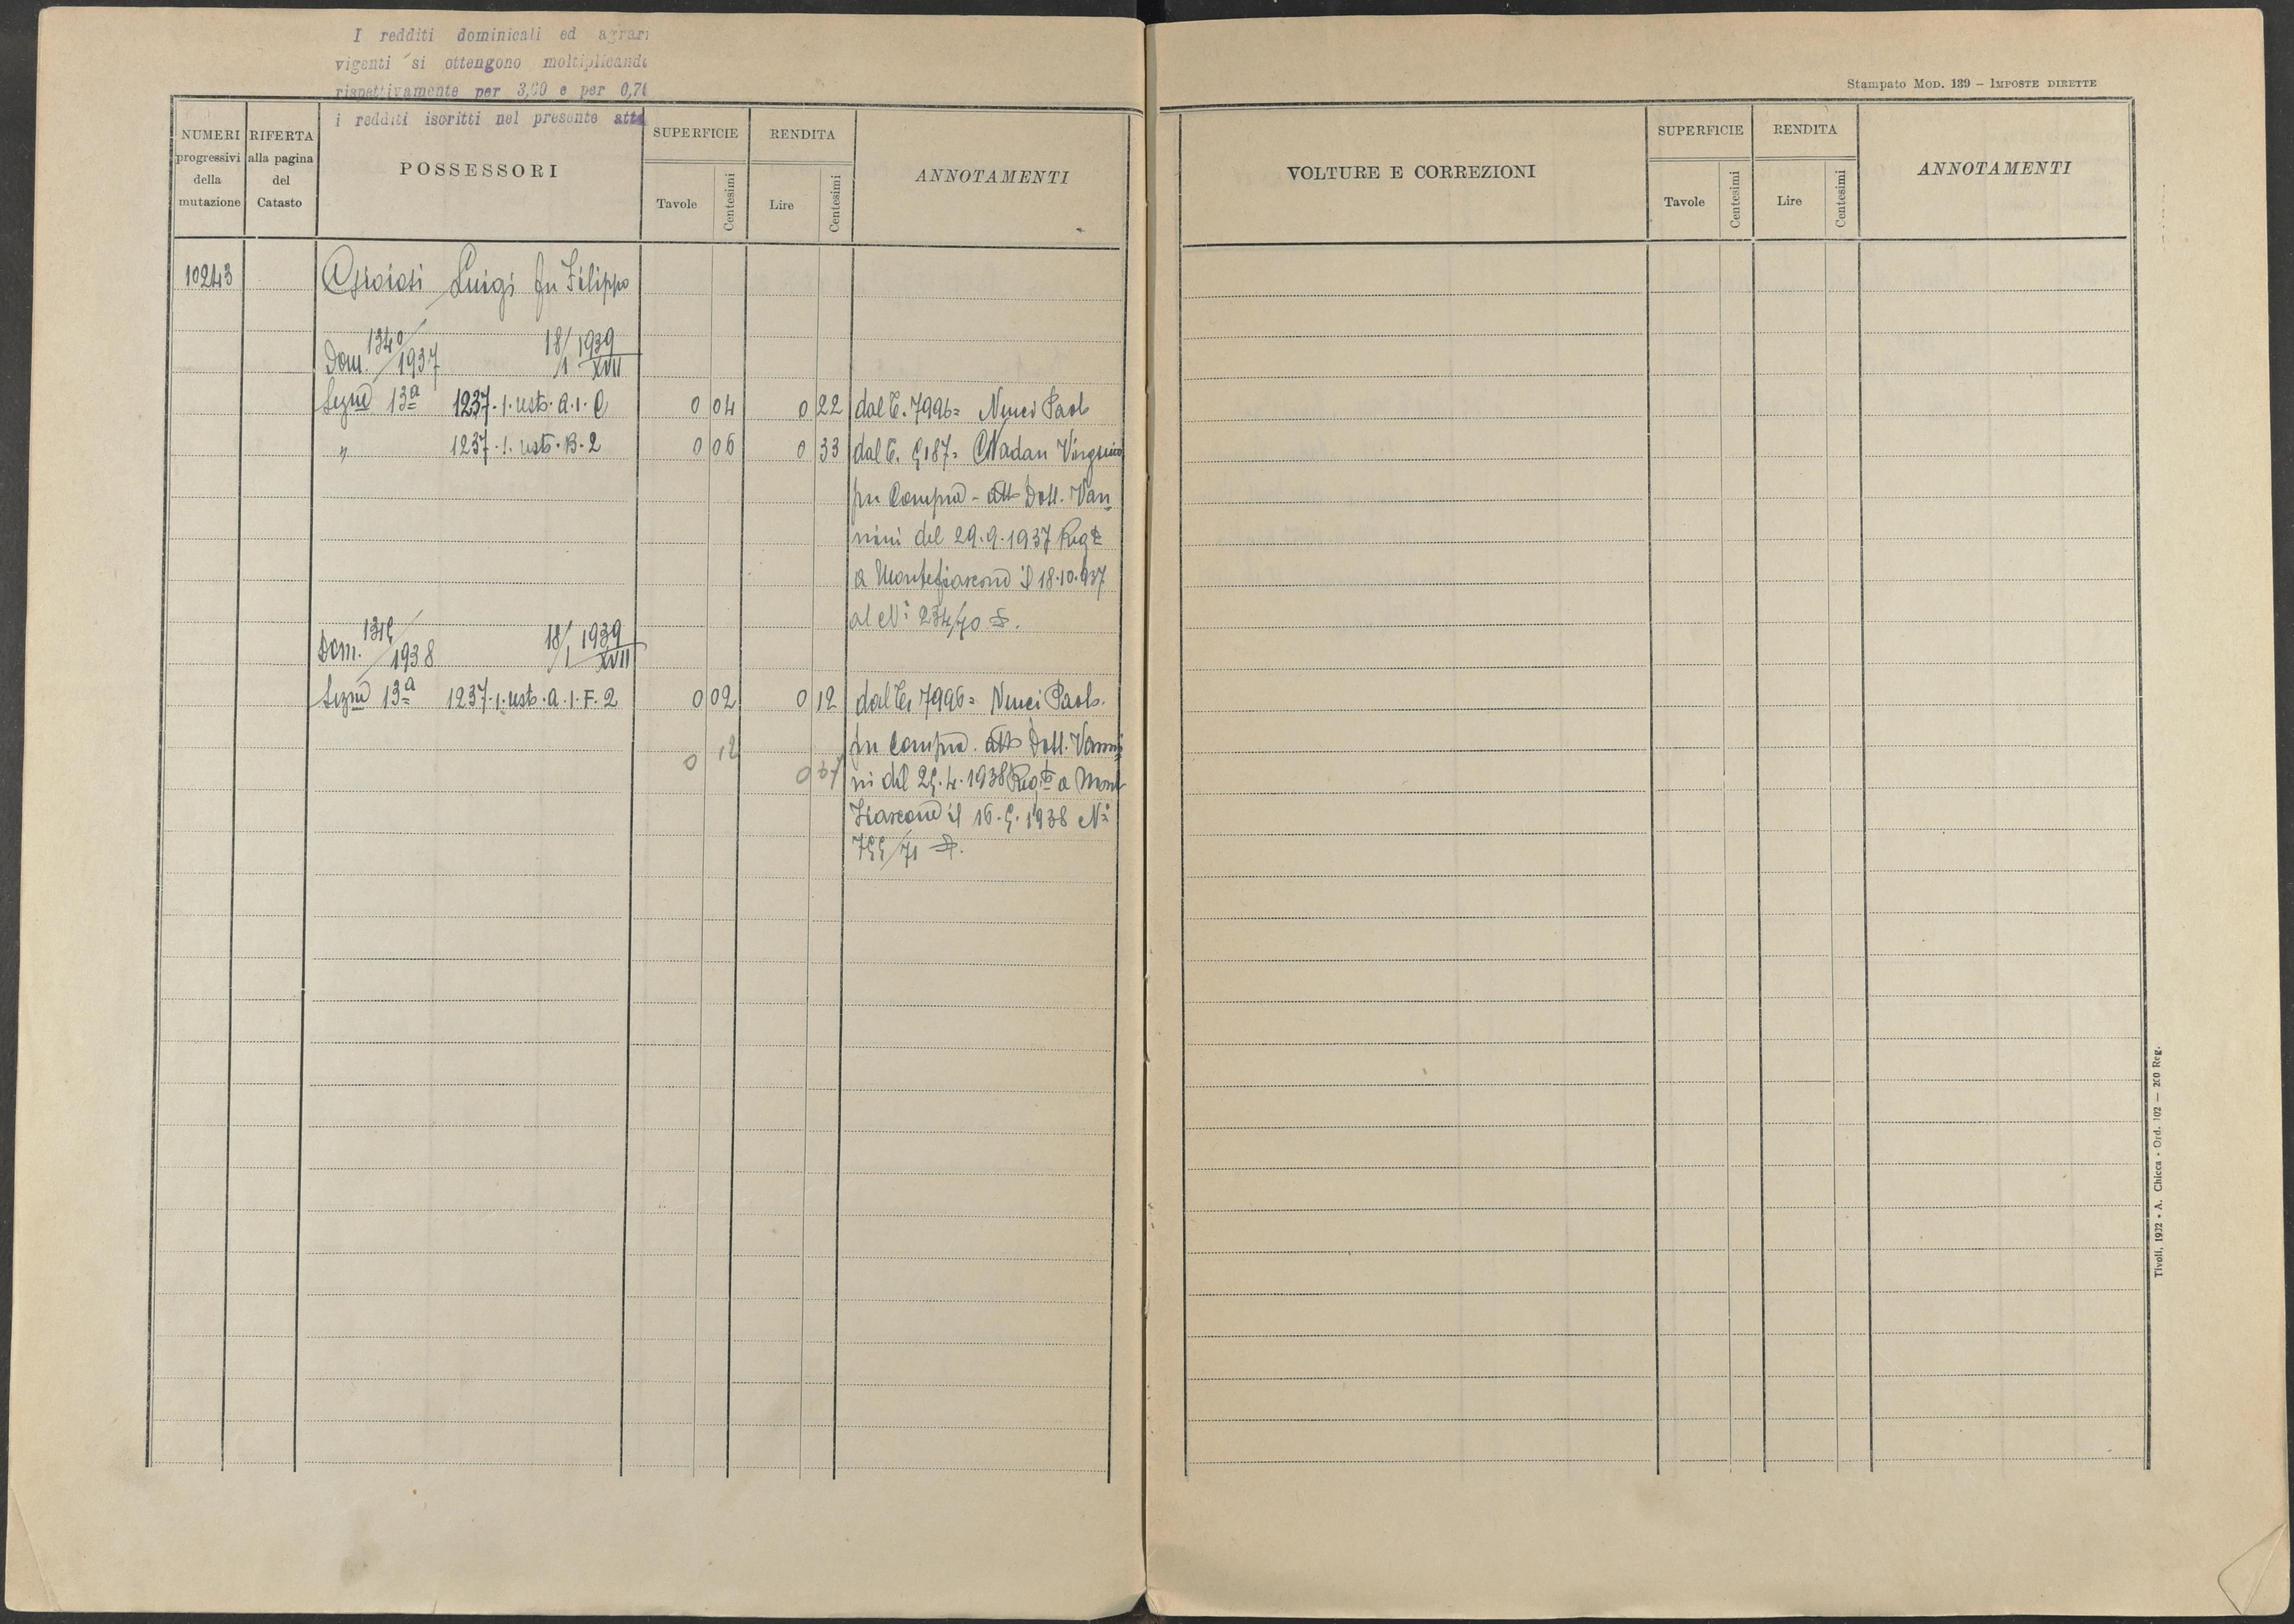 I redditi dominicali ed agrari
vigenti si ottengono moltiplicando
rispettivamente per 3,00 e per 0,70
i redditi iscritti nel presente atto
NUMERI progressivi della mutazione
RIFERTA alla pagina del Catasto
POSSESSORI
SUPERFICIE
Tavole Centesimi
RENDITA
Lire Centesimi
ANNOTAMENTI
10243 Luigi fu Filippo
Dom. 1340/1937 18/1 1939 XVII
Sezne 13a 1237.1. resto. a.1. C 0 04 0 22 dal C. 7996= Nenci Paolo
" 1237.1. resto. B.2 0 06 0 33 dal C. 5187=
per Compra - atto Dott. Van
nini del 29.9.1937 Regto
a Montefiascone il 18.10.937
al No 234/70
Dom. 1315/1938 18/1 1939 XVII
Sezne 13a 1237.1. resto. a.1.F.2 0 02 0 12 dal C. 7996= Nenci Paolo.
per Compra. atto Dott. Vanni
0 12
0 67 ni del 25.4.1938 Regto a Monte
fiascone il 16.5.1938 No
755/71
Stampato MOD. 139 – IMPOSTE DIRETTE
VOLTURE E CORREZIONI
SUPERFICIE
Tavole Centesimi
RENDITA
Lire Centesimi
ANNOTAMENTI
Tivoli, 1932 - A. Chicca - Ord. 102 — 200 Reg.